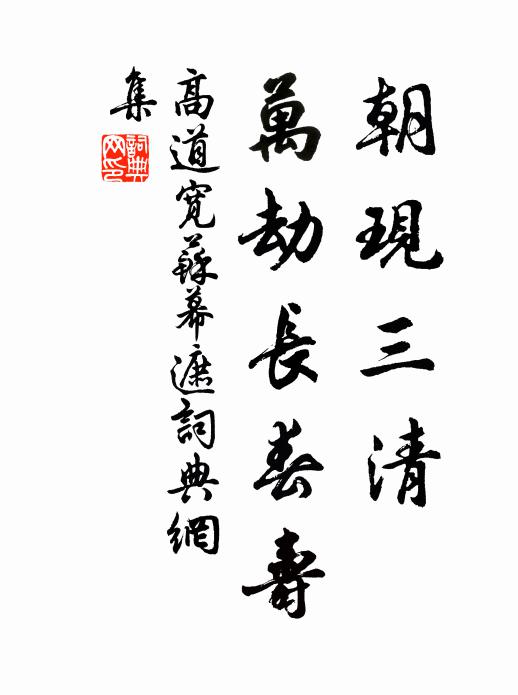 朝現三清
萬劫長春壽
高道寬蘇幕遮詞典網
集
詞典
網印